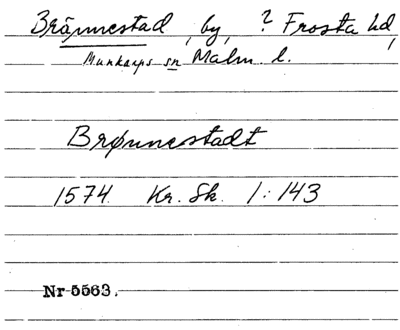 Brännestad, by, ? Frosta hd,
Munkarps sn Malm. l.
Brønnestadt
1574 Kr. Sk. 1:143
Nr 5563.